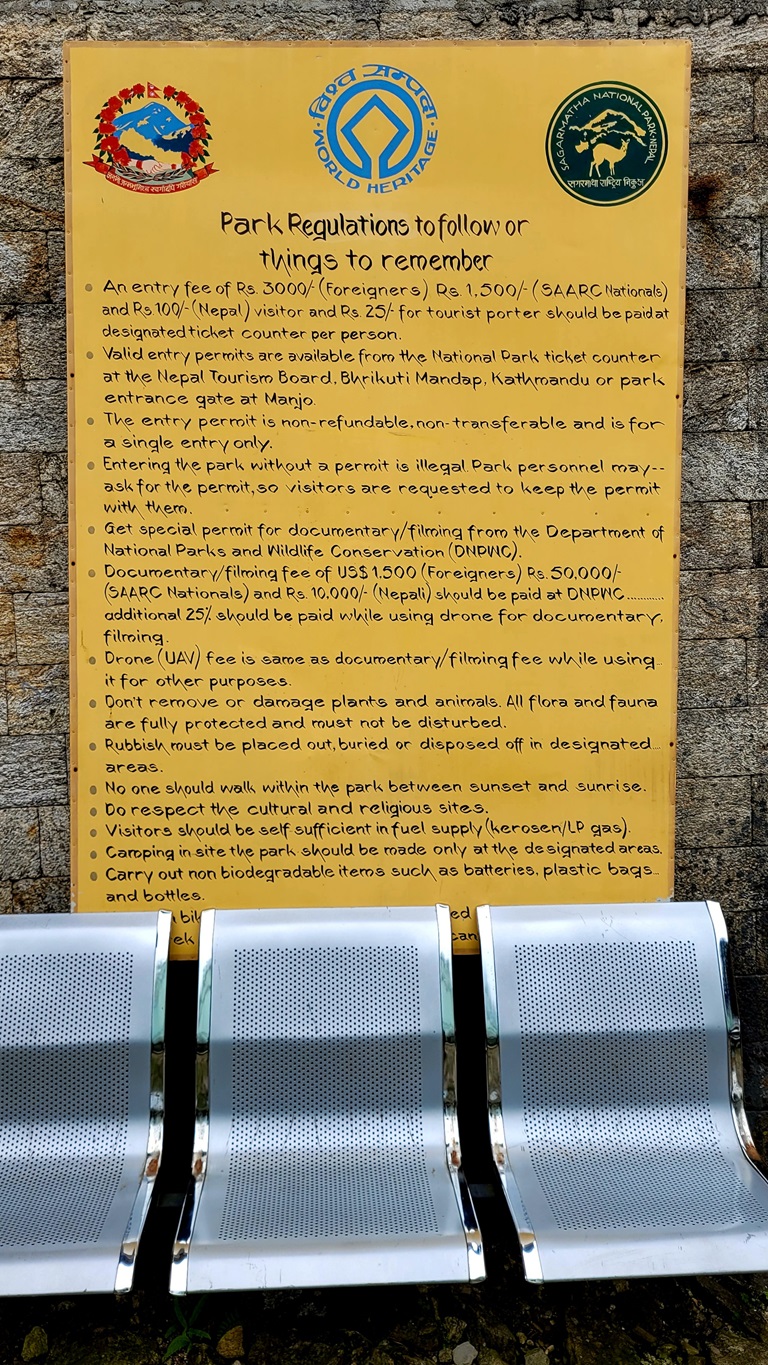 विश्व सम्पदा
WORLD HERITAGE
SAGARMATHA NATIONAL PARK-NEPAL
सगरमाथा राष्ट्रिय निकुञ्ज
Park Regulations to follow or
things to remember
An entry fee of Rs. 3000/- (Foreigners) Rs. 1,500/- (SAARC Nationals)
and Rs. 100/- (Nepal) visitor and Rs. 25/- for tourist porter should be paid at
designated ticket counter per person.
Valid entry permits are available from the National Park ticket counter
at the Nepal Tourism Board, Bhrikuti Mandap, Kathmandu or park
entrance gate at Manjo.
The entry permit is non-refundable, non-transferable and is for
a single entry only.
Entering the park without a permit is illegal. Park personnel may--
ask for the permit, so visitors are requested to keep the permit
with them.
Get special permit for documentary/filming from the Department of
National Parks and Wildlife Conservation (DNPWC).
Documentary/filming fee of US$ 1,500 (Foreigners) Rs. 50,000/-
(SAARC Nationals) and Rs. 10,000/- (Nepali) should be paid at DNPWC...........
additional 25% should be paid while using drone for documentary,
filming.
Drone (UAV) fee is same as documentary/filming fee while using..
it for other purposes.
Don't remove or damage plants and animals. All flora and fauna
are fully protected and must not be disturbed.
Rubbish must be placed out, buried or disposed off in designated...
areas.
No one should walk within the park between sunset and sunrise.
Do respect the cultural and religious sites.
Visitors should be self sufficient in fuel supply (kerosen/LP gas).
Camping in site the park should be made only at the designated areas.
Carry out non biodegradable items such as batteries, plastic bags...
and bottles.